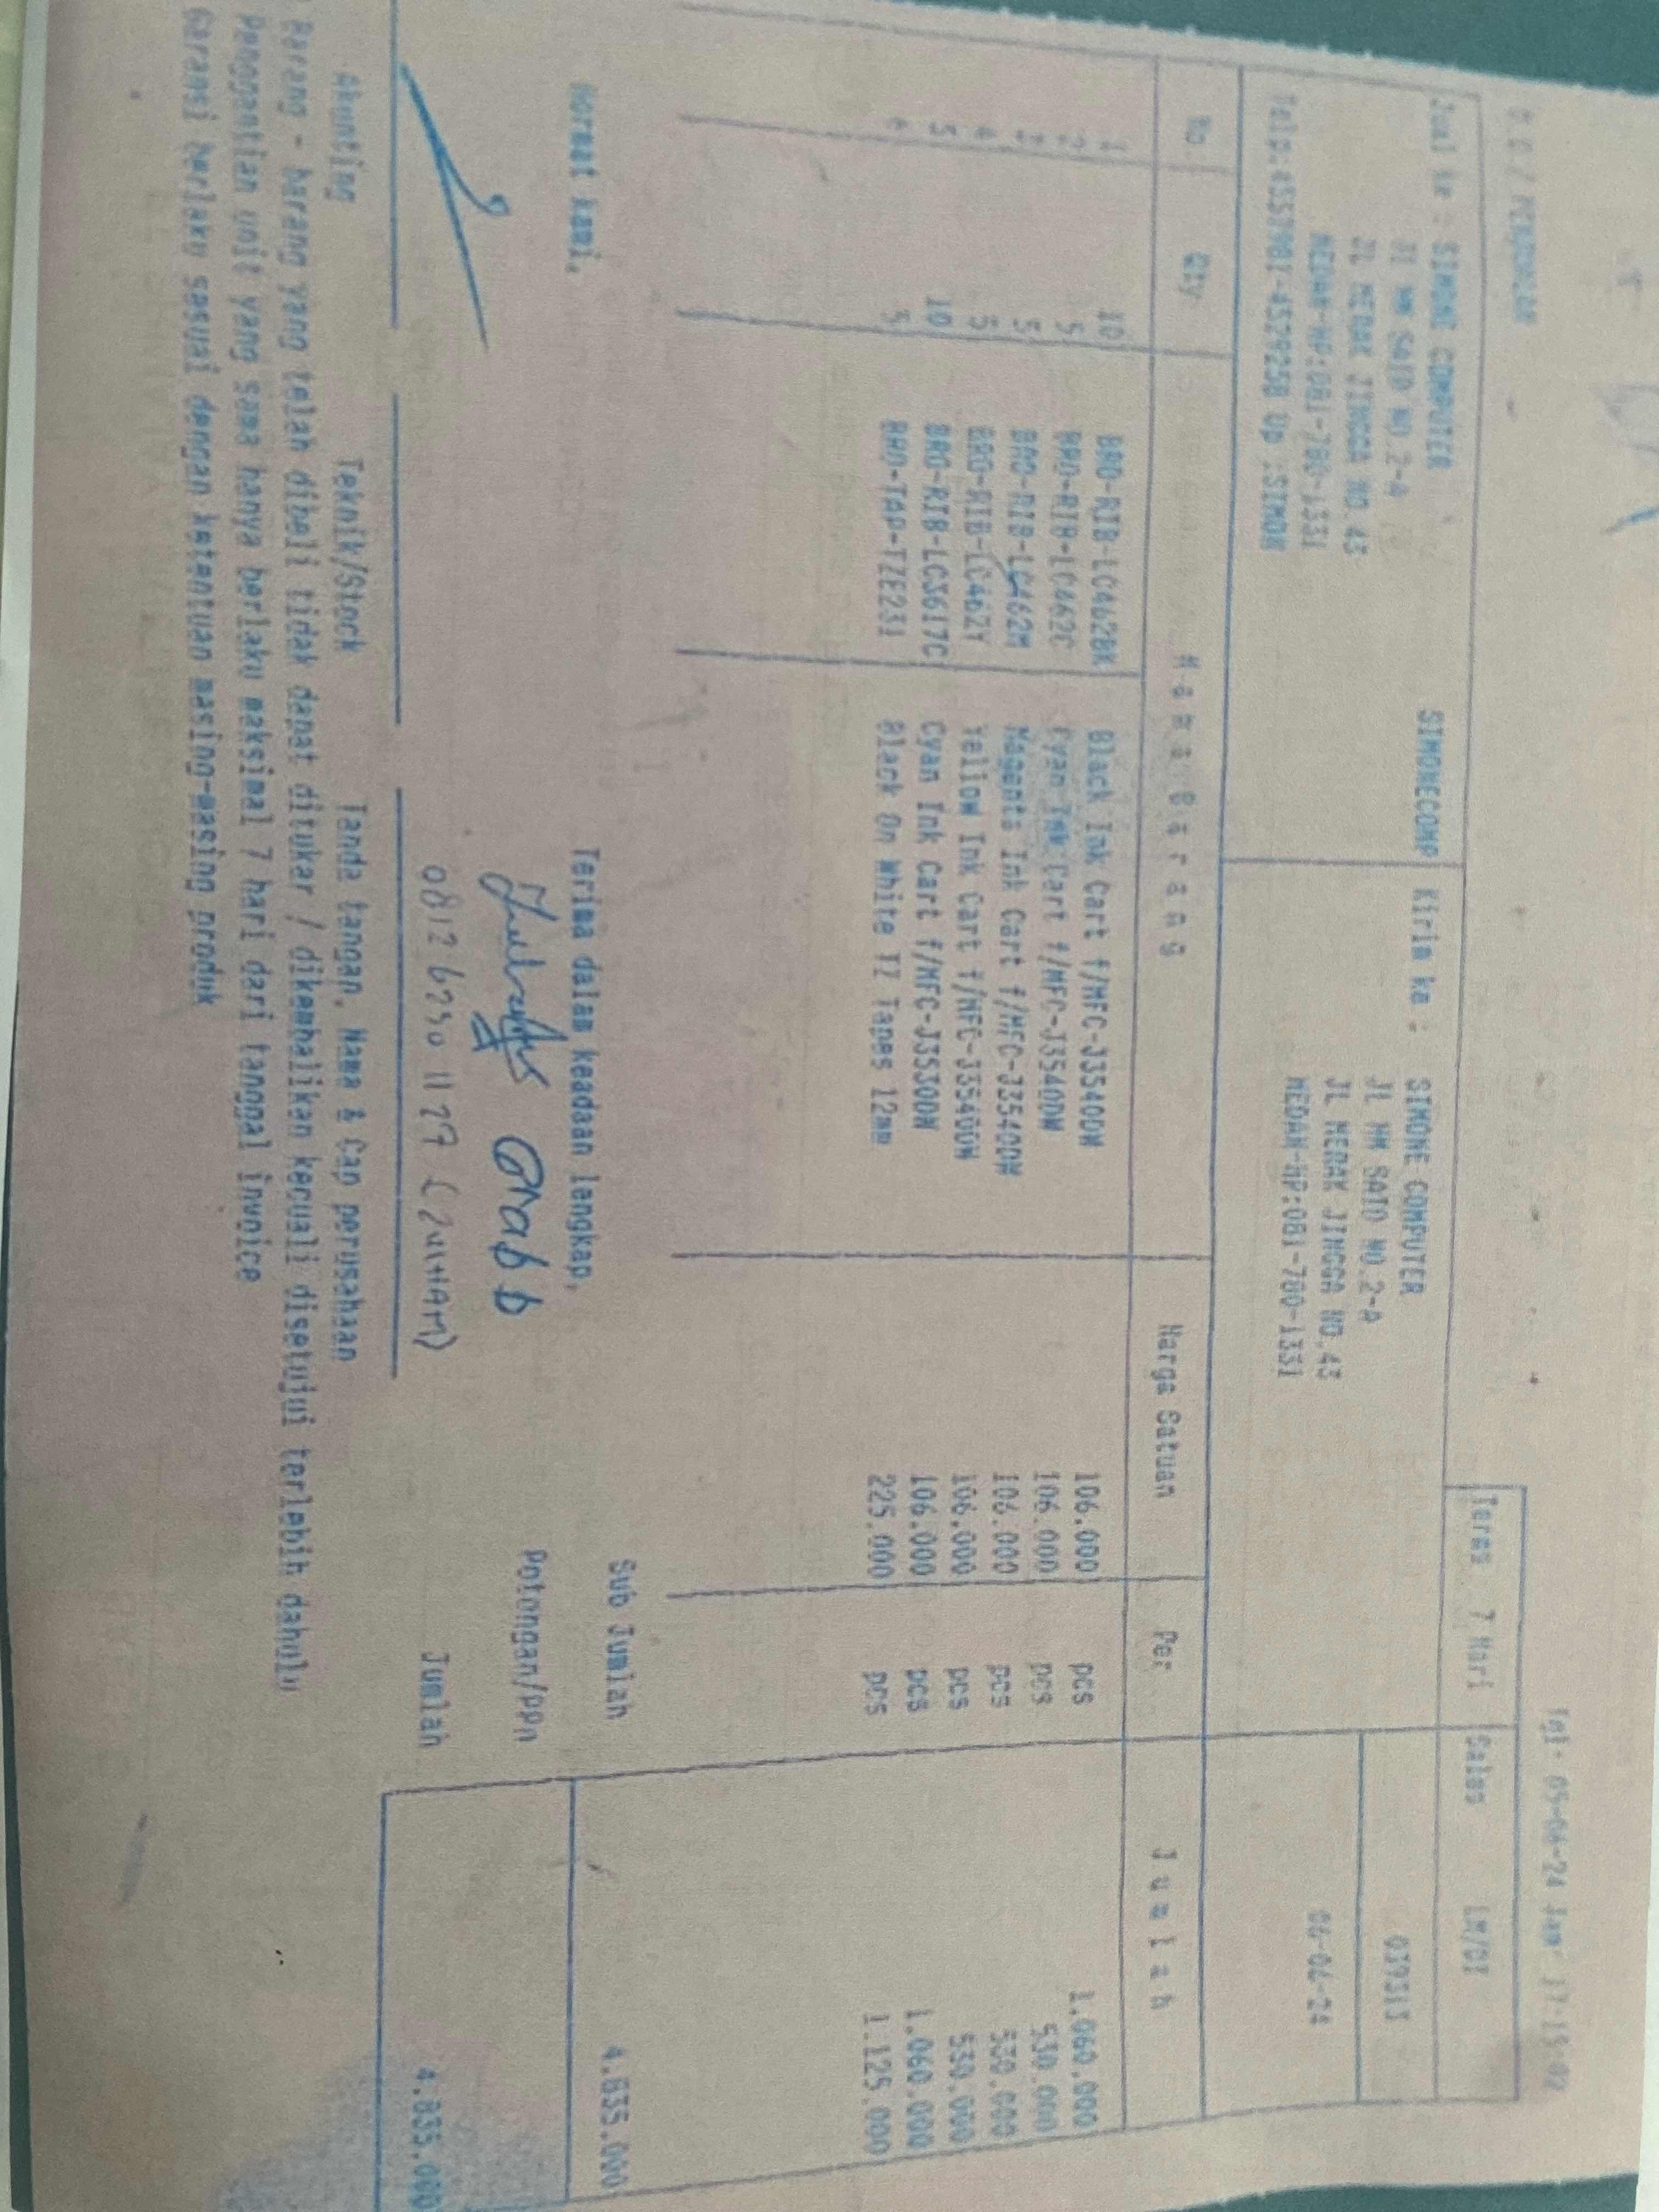 Tgl: 05-06-24 Jam: 17:15:02
Terms 7 Hari Sales LM/DT
Jual ke : SIMONE COMPUTER SIMONECOMP
JL HM SAID NO.2-A
JL MERAK JINGGA NO.43
MEDAN-HP:081-780-1331
Op :SIMON
Kirim ke : SIMONE COMPUTER
JL HM SAID NO.2-A
JL MERAK JINGGA NO.43
MEDAN-HP:081-780-1331
039313
06-06-24
No Qty Nama Barang Harga Satuan Per Jumlah
1 10 BRO-RIB-LC462BK Black Ink Cart f/MFC-J3540DW 106.000 pcs 1.060.000
2 5 BRO-RIB-LC462C Cyan Ink Cart f/MFC-J3540DW 106.000 pcs 530.000
3 5 BRO-RIB-LC462M Magenta Ink Cart f/MFC-J3540DW 106.000 pcs 530.000
4 5 BRO-RIB-LC462Y Yellow Ink Cart f/MFC-J3540DW 106.000 pcs 530.000
5 10 BRO-RIB-LC3617C Cyan Ink Cart f/MFC-J3530DW 106.000 pcs 1.060.000
6 5 BRO-TAP-TZE231 Black On White TZ Tapes 12mm 225.000 pcs 1.125.000
Sub Jumlah 4.835.000
Hormat kami, Terima dalam keadaan lengkap,
Potongan/PPn
Grab
0812 6230 1177 (ZULHAM)
Jumlah 4.835.000
Akunting Teknik/Stock Tanda tangan, Nama & Cap perusahaan
Barang - barang yang telah dibeli tidak dapat ditukar / dikembalikan kecuali disetujui terlebih dahulu
Penggantian unit yang sama hanya berlaku maksimal 7 hari dari tanggal invoice
Garansi berlaku sesuai dengan ketentuan masing-masing produk